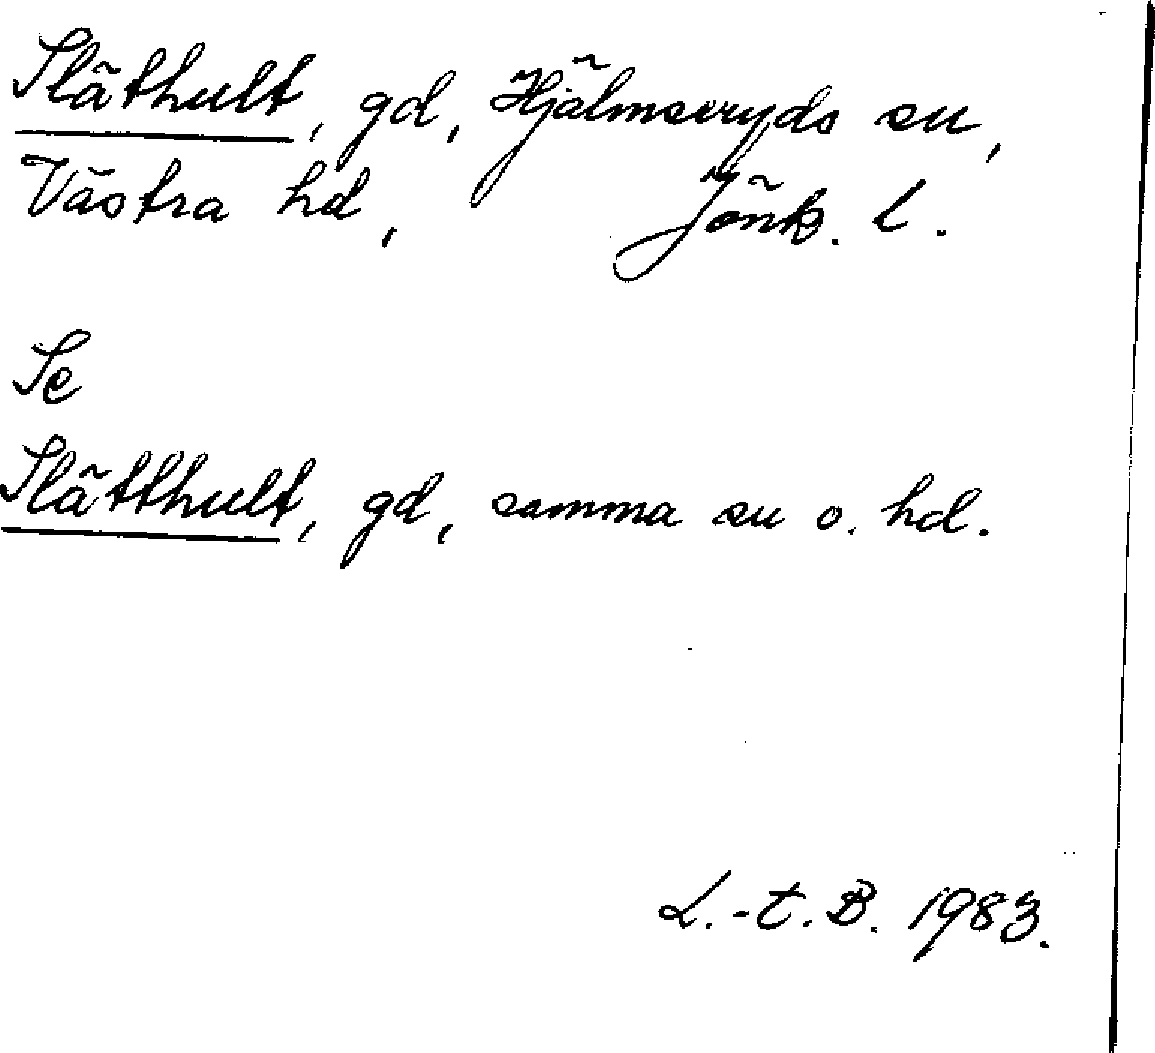 Släthult, gd, Hjälmseryds sn,
Västra hd, Jönk. l.
Se
Slätthult, gd, samma sn o. hd.
L.-t. B. 1983.